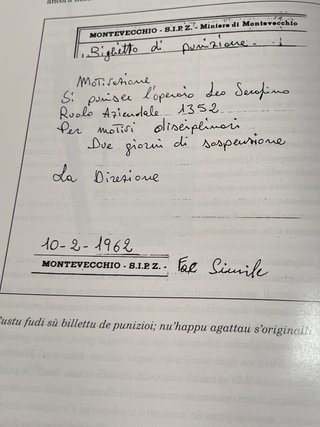 MONTEVECCHIO - S.I.P.Z. - Miniere di Montevecchio
Biglietto di punizione.
Motivazione
Si punisce l'operaio Leo Serafino
Ruolo Aziendale 1352
Per motivi disciplinari
Due giorni di sospensione
La Direzione
10-2-1962
MONTEVECCHIO - S.I.P.Z. -
Fac Simile
Custu fudi sù billettu de punizioi; nu'happu agattau s'originell